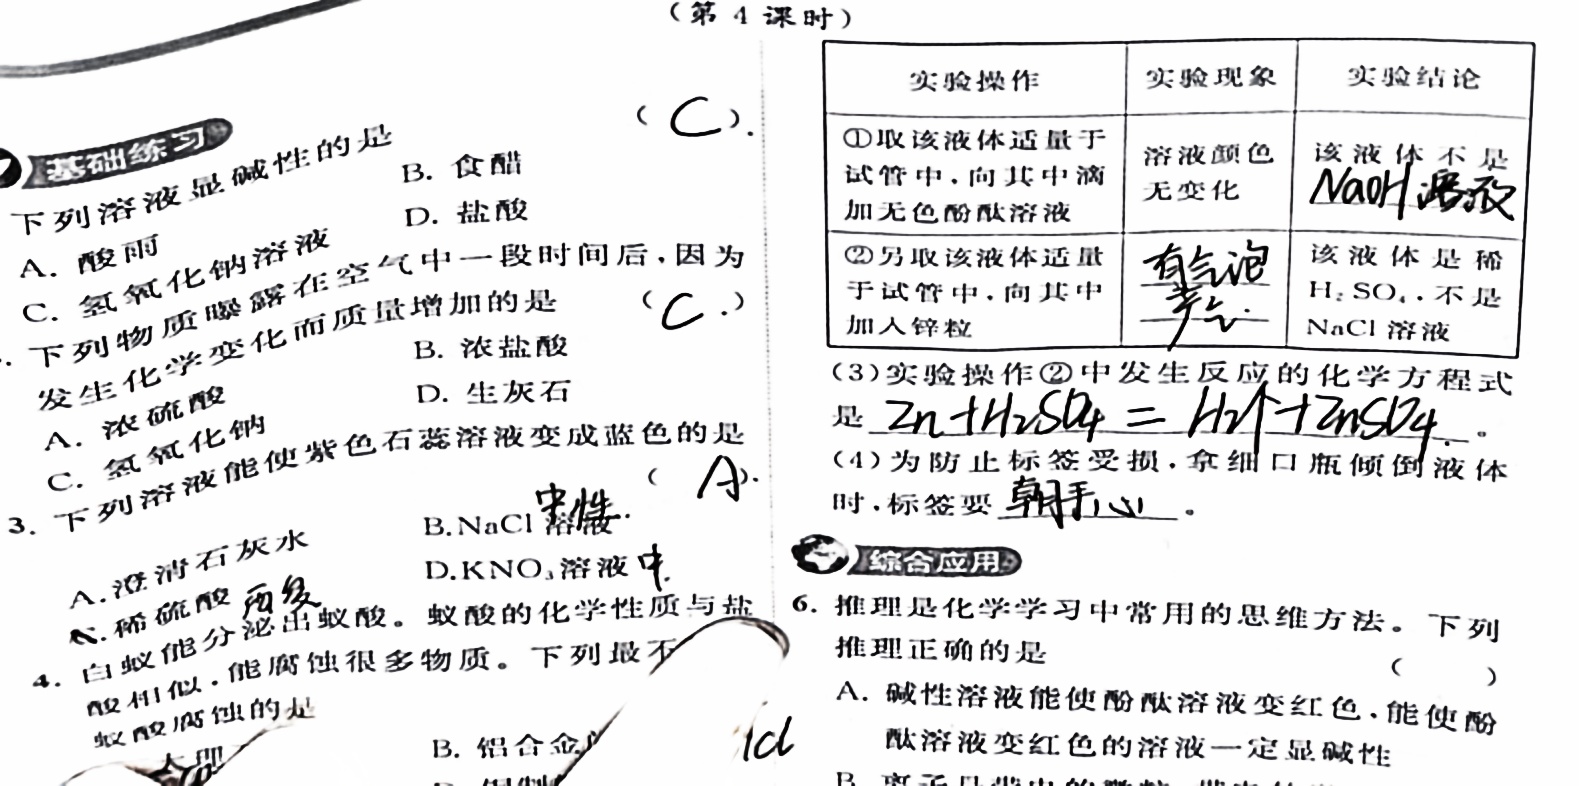 （第 4 课时）
基础练习
下列溶液显碱性的是 （ C ）.
A. 酸雨 B. 食醋
C. 氢氧化钠溶液 D. 盐酸
. 下列物质曝露在空气中一段时间后，因为
发生化学变化而质量增加的是 （ C . ）
A. 浓硫酸 B. 浓盐酸
C. 氢氧化钠 D. 生灰石
3. 下列溶液能使紫色石蕊溶液变成蓝色的是
（ A ）.
中性
A. 澄清石灰水 B. NaCl 溶液.
C. 稀硫酸 D. KNO₃溶液 中.
4. 白蚁能分泌出蚁酸。蚁酸的化学性质与盐
酸相似，能腐蚀很多物质。下列最不
蚁酸腐蚀的是
B. 铝合金
实验操作 实验现象 实验结论
①取该液体适量于
试管中，向其中滴
加无色酚酞溶液
溶液颜色
无变化
该液体不是
NaOH 溶液
②另取该液体适量
于试管中，向其中
加入锌粒
有气泡
产生.
该液体是稀
H₂SO₄，不是
NaCl 溶液
(3)实验操作②中发生反应的化学方程式
是 Zn+H₂SO₄=H₂↑+ZnSO₄ 。
(4)为防止标签受损，拿细口瓶倾倒液体
时，标签要 朝手心 。
综合应用
6. 推理是化学学习中常用的思维方法。下列
推理正确的是 （ ）
A. 碱性溶液能使酚酞溶液变红色，能使酚
酞溶液变红色的溶液一定显碱性